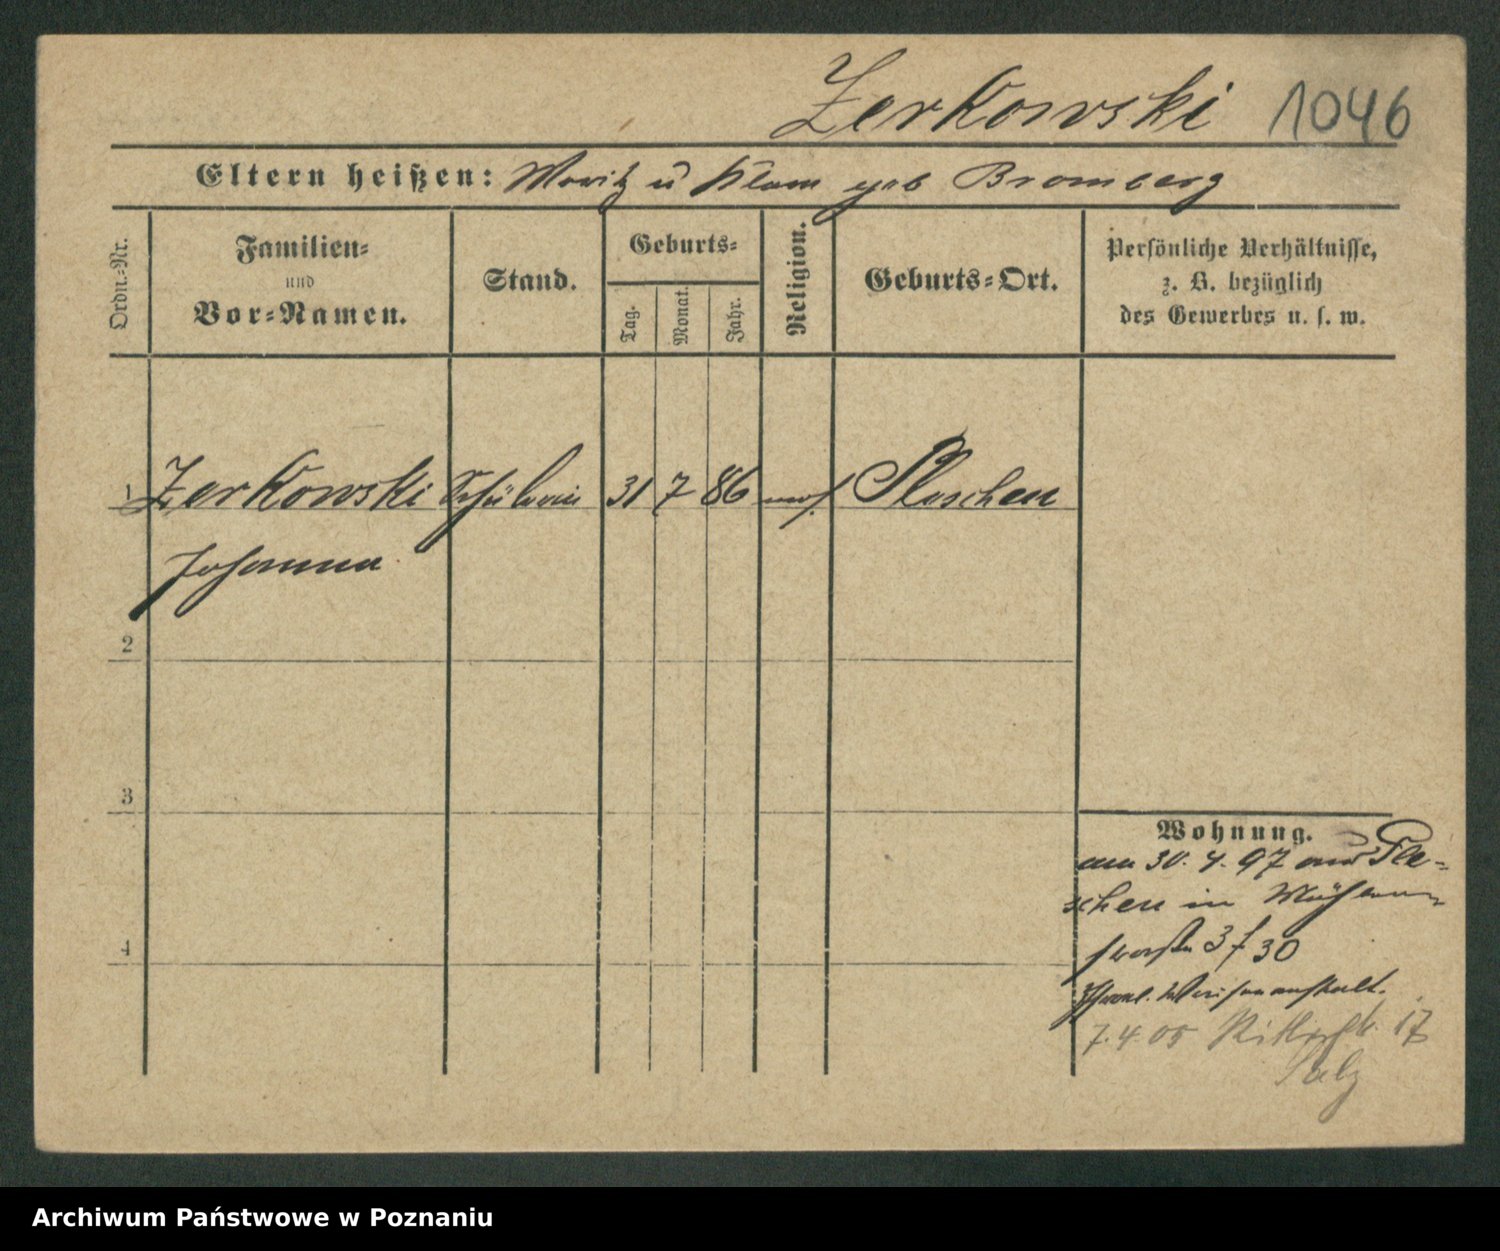 Zerkowski 1046
Eltern heißen: Moritz u Klara geb Bromberg
Ordn.-Nr.
Familien-
und
Vor-Namen.
Stand.
Geburts-
Tag.
Monat.
Jahr.
Religion.
Geburts-Ort.
Persönliche Verhältnisse,
z. B. bezüglich
des Gewerbes u. s. w.
1 Zerkowski Schülerin 31 7 86 mos. Pleschen
Johanna
2
3
4
Wohnung.
am 30. 4. 97 aus Ple-
schen in
3 f 30
Waisenanstalt.
7.4.05 17
Archiwum Państwowe w Poznaniu